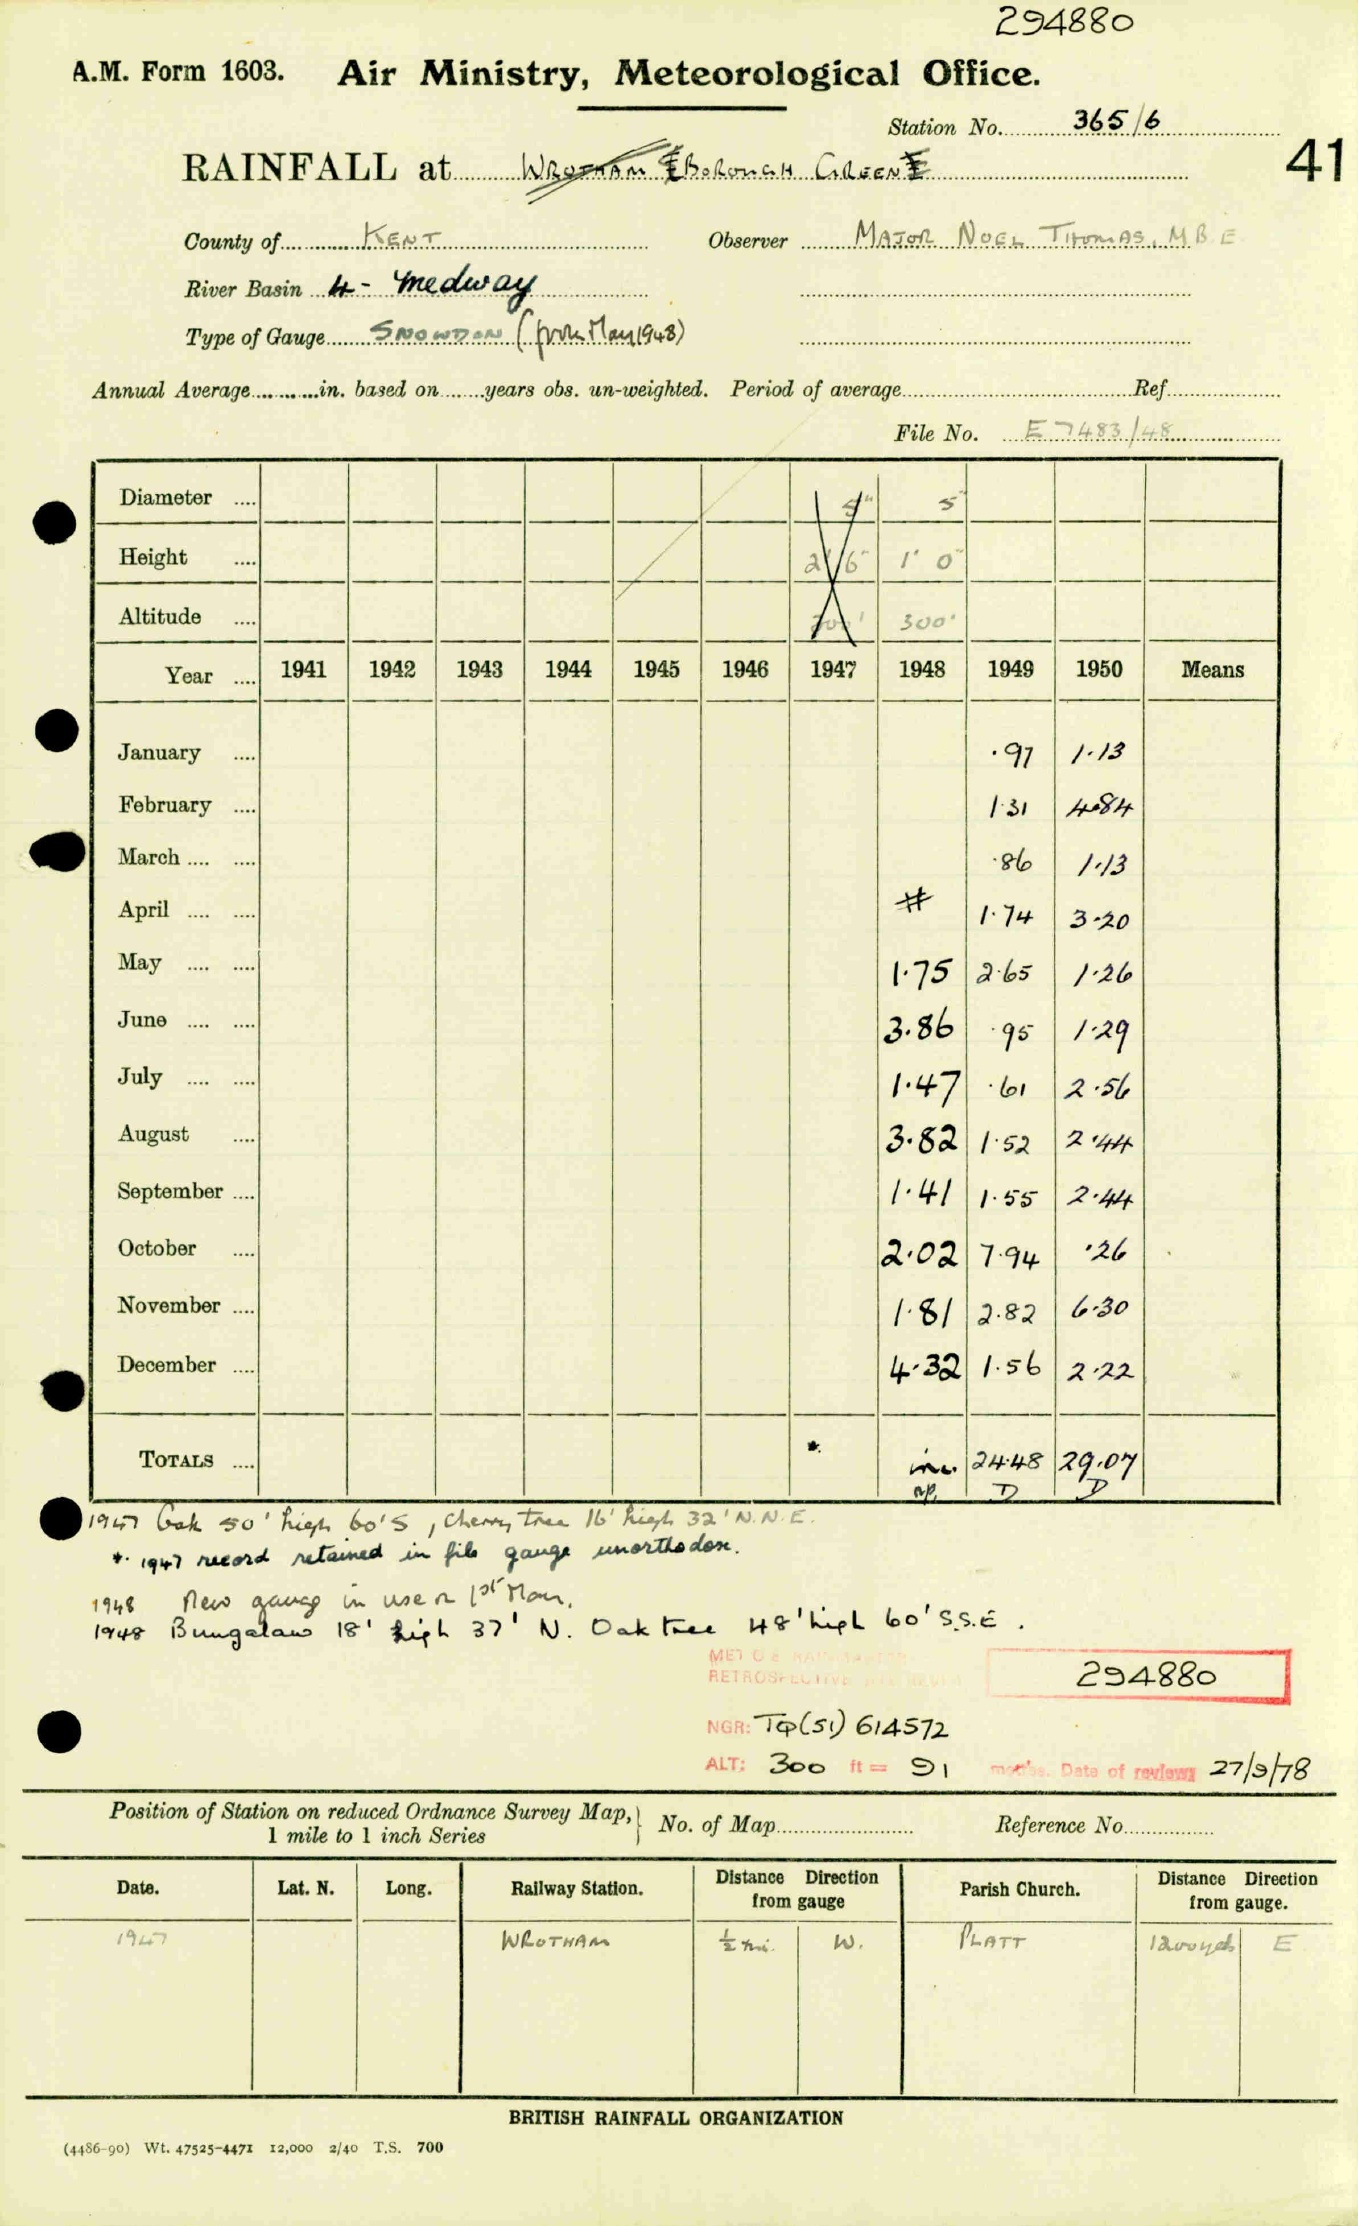 294880
A.M. Form 1603. Air Ministry, Meteorological Office.
Station No. 365/6
41
RAINFALL at WROTHAM (BOROUGH GREEN)
County of KENT Observer MAJOR NOEL THOMAS, M.B.E
River Basin 4 - Medway
Type of Gauge SNOWDON (from May 1948)
Annual Average in. based on years obs. un-weighted. Period of average Ref.
File No. E 7483/48
Diameter .... 5" 5"
Height .... 2' 6" 1' 0"
Altitude .... 300' 300'
Year .... 1941 1942 1943 1944 1945 1946 1947 1948 1949 1950 Means
January .... .97 1.13
February .... 1.31 4.84
March .... .... .86 1.13
April .... .... # 1.74 3.20
May .... .... 1.75 2.65 1.26
June .... .... 3.86 .95 1.29
July .... .... 1.47 .61 2.56
August .... 3.82 1.52 2.44
September .... 1.41 1.55 2.44
October .... 2.02 7.94 .26
November .... 1.81 2.82 6.30
December .... 4.32 1.56 2.22
TOTALS .... * inc. 24.48 29.07
D D
1947 Oak 50' high 60' S, Cherry tree 16' high 32' N.N.E.
* 1947 record retained in file gauge unorthodox.
1948 New gauge in use on 1st May.
1948 Bungalow 18' high 37' N. Oak tree 48' high 60' S.S.E.
MET O 8
RETROSPECTIVE
294880
NGR: TQ(51) 614572
ALT: 300 ft = 91 metres. Date of review 27/9/78
Position of Station on reduced Ordnance Survey Map, } No. of Map Reference No.
1 mile to 1 inch Series
Date. Lat. N. Long. Railway Station. Distance Direction from gauge Parish Church. Distance Direction from gauge.
1947 WROTHAM ½ mi. W. PLATT 1200 yds E
BRITISH RAINFALL ORGANIZATION
(4486-90) Wt. 47525-4471 12,000 2/40 T.S. 700